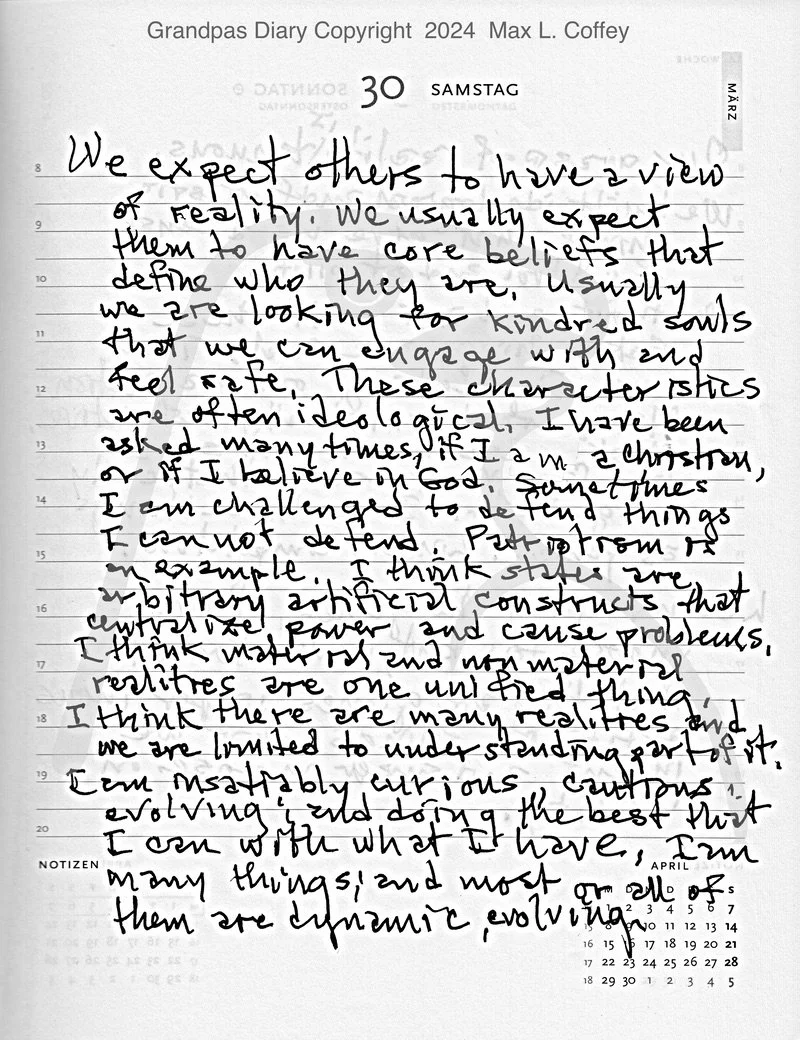 Grandpas Diary Copyright 2024 Max L. Coffey
30 SAMSTAG
MÄRZ
8 We expect others to have a view
of reality. We usually expect
9 them to have core beliefs that
10 define who they are. Usually
we are looking for kindred souls
11 that we can engage with and
12 feel safe. These characteristics
are often ideological. I have been
13 asked many times, if I am a christian,
or if I believe in God. Sometimes
14 I am challenged to defend things
I cannot defend. Patriotism is
15 an example. I think states are
arbitrary artificial constructs that
16 centralize power and cause problems.
I think material and non material
17 realities are one unified thing.
18 I think there are many realities and
we are limited to understanding part of it.
19 I am insatiably curious, cautious,
evolving, and doing the best that
20 I can with what I have, I am
NOTIZEN
APRIL
many things, and most or all of
them are dynamic, evolving.
M D M D F S S
1 2 3 4 5 6 7
15 8 9 10 11 12 13 14
16 15 16 17 18 19 20 21
17 22 23 24 25 26 27 28
18 29 30 1 2 3 4 5